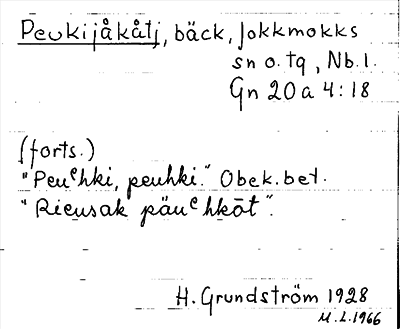 Peukijåkåtj, bäck, Jokkmokks
sn o. tg, Nb. l.
Gn 20 a 4:18
(forts.)
"Peuᵉhki, peuhki." Obek. bet.
"Rieusak päuᵉhkōt".
H. Grundström 1928
M.L. 1966